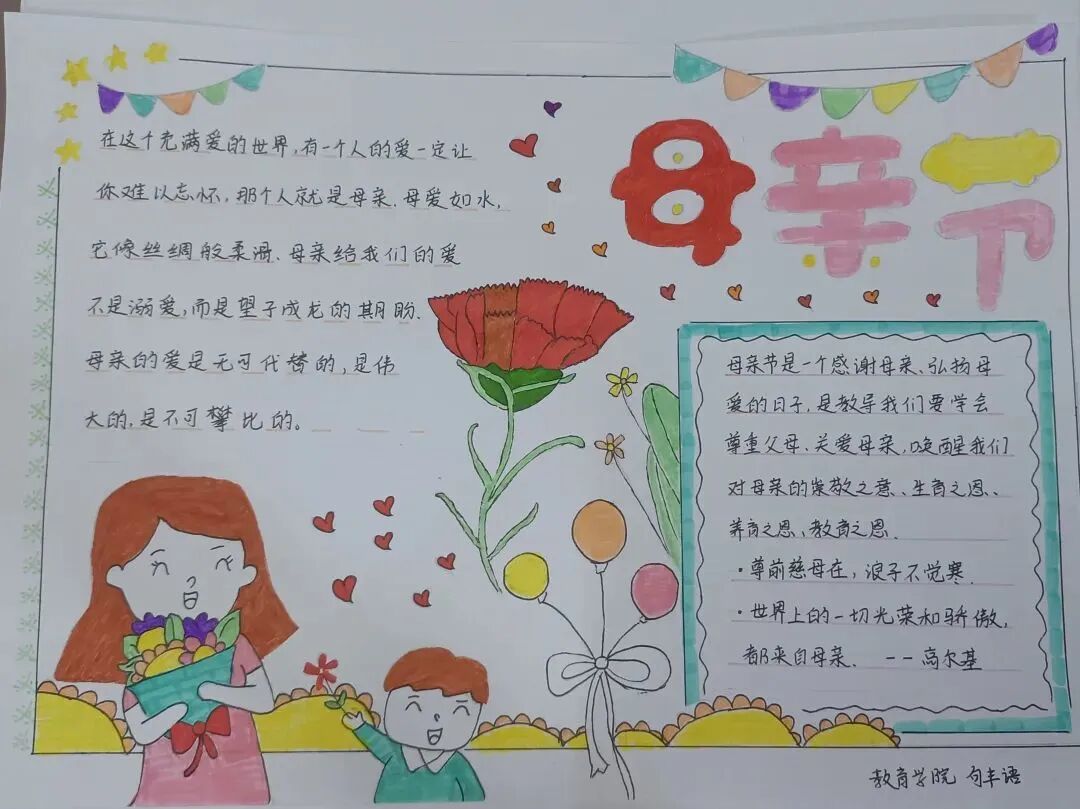 母亲节
在这个充满爱的世界,有一个人的爱一定让
你难以忘怀,那个人就是母亲、母爱如水,
它像丝绸般柔滑、母亲给我们的爱
不是溺爱,而是望子成龙的期盼、
母亲的爱是无可代替的,是伟
大的,是不可攀比的。
母亲节是一个感谢母亲、弘扬母
爱的日子,是教导我们要学会
尊重父母、关爱母亲,唤醒我们
对母亲的崇敬之意、生育之恩、
养育之恩、教育之恩.
·尊前慈母在,浪子不觉寒.
·世界上的一切光荣和骄傲,
都来自母亲. --高尔基
教育学院 句丰语